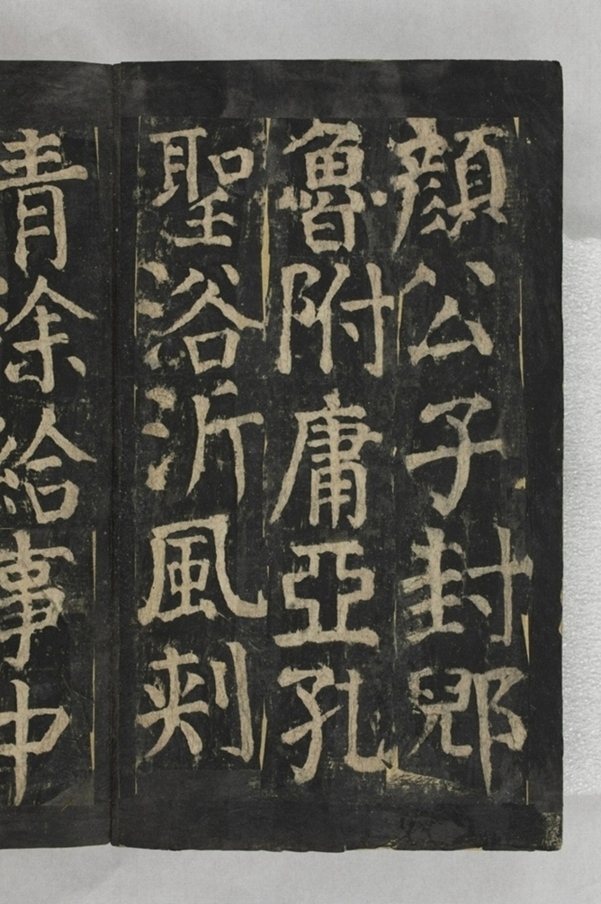 顔公子封郳
魯附庸亞孔
聖浴沂風刾
青徐給事中